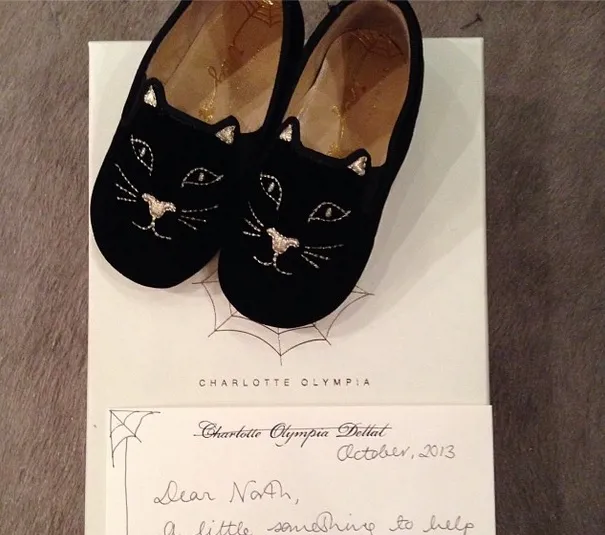 CHARLOTTE OLYMPIA
Charlotte Olympia Dellal
October, 2013
Dear North,
A little something to help